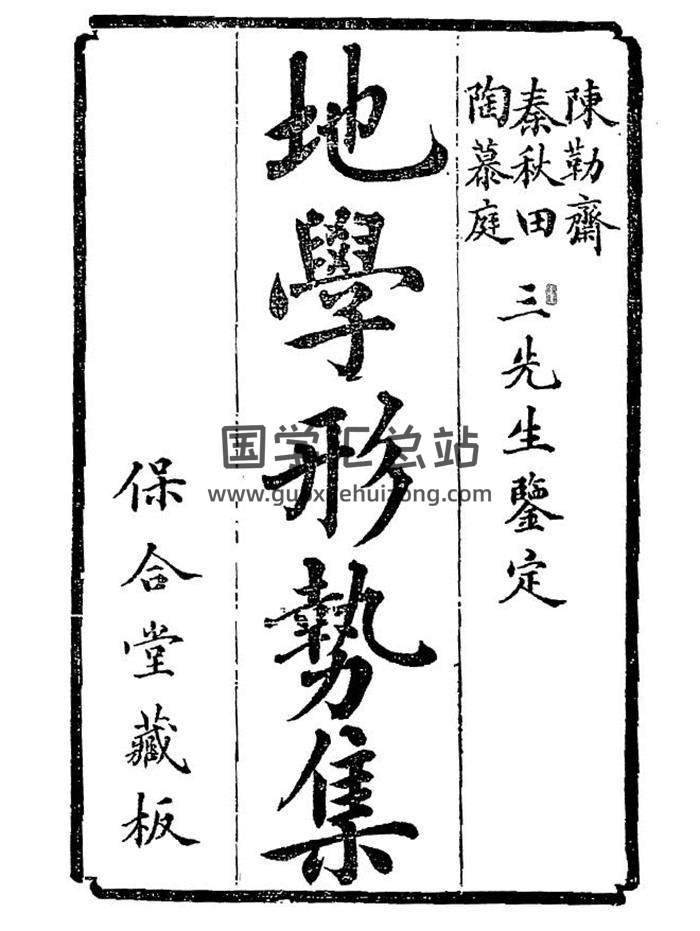 陳勒齋
秦秋田
陶慕庭
三先生鑒定
地學形勢集
保合堂藏板
国学汇总站
www.guoxuehuizong.com